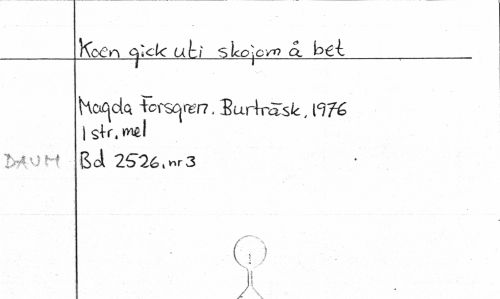 Koen gick uti skojom å bet
Magda Forsgren. Burträsk, 1976
1 str, mel
DAUM Bd 2526, nr 3